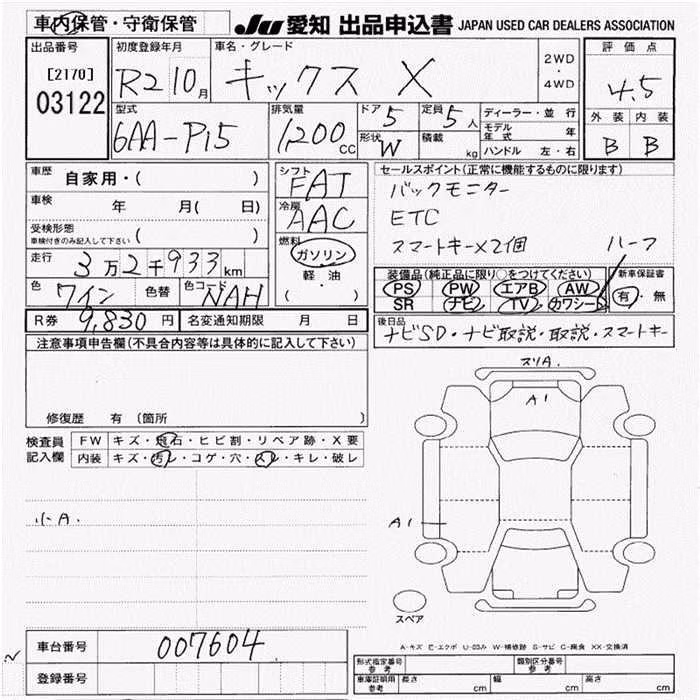 車内保管・守衛保管 JU 愛知 出品申込書 JAPAN USED CAR DEALERS ASSOCIATION
出品番号 初度登録年月 車名・グレード 評価点
[2170] R2 10月 キックス X 2WD・4WD 4.5
03122
型式 排気量 ドア 定員 ディーラー・並行 外装 内装
6AA-P15 1,200cc 5 5人 モデル年式 年 B B
形状 W 積載 kg ハンドル 左・右
車歴 自家用・( ) シフト FAT セールスポイント(正常に機能するものに限ります)
車検 年 月( 日) 冷房 AAC バックモニター
受検形態 ( ) ETC
車検付きのみ記入して下さい 燃料 ガソリン スマートキー×2個
走行 3万2千933km 軽・油 ハーフ
( ) 装備品(純正品に限り○をつけてください) 新車保証書
色 ワイン 色替 色コード NAH PS PW エアB AW 有・無
SR ナビ TV カワシート
R券 9,830円 名変通知期限 月 日 後日品
ナビSD・ナビ取説・取説・スマートキー
注意事項申告欄(不具合内容等は具体的に記入して下さい)
スリA.
A1
修復歴 有 (箇所 )
検査員 FW キズ・飛石・ヒビ割・リペア跡・X要
記入欄 内装 キズ・汚レ・コゲ・穴・スレ・キレ・破レ
小A.
A1
スペア
車台番号 007604
A-キズ E-エクボ U-凹み W-補修跡 S-サビ C-腐食 XX-交換済
登録番号
型式指定番号 参考 類別区分番号 参考
車庫証明用 参考 長さ cm 幅 cm 高さ cm